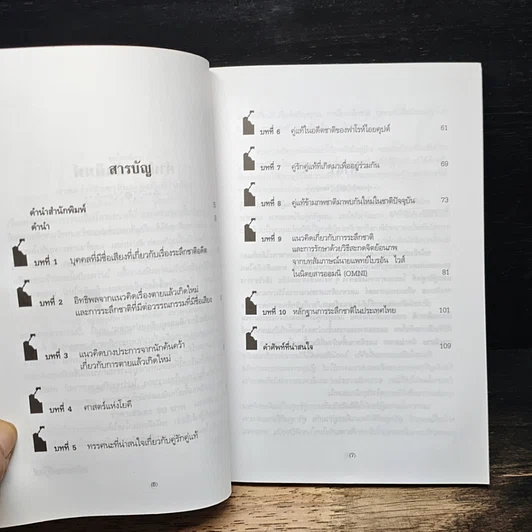 สารบัญ
คำนำสำนักพิมพ์
คำนำ
บทที่ 1 บุคคลที่มีชื่อเสียงที่เกี่ยวกับเรื่องระลึกชาติอดีต
บทที่ 2 อิทธิพลจากแนวคิดเรื่องตายแล้วเกิดใหม่
และการระลึกชาติที่มีต่อวรรณกรรมที่มีชื่อเสียง
บทที่ 3 แนวคิดบางประการจากนักค้นคว้า
เกี่ยวกับการตายแล้วเกิดใหม่
บทที่ 4 ศาสตร์แห่งโยคี
บทที่ 5 ทรรศนะที่น่าสนใจเกี่ยวกับคู่รักคู่แท้
(6)
บทที่ 6 คู่แท้ในอดีตชาติของฟาโรห์โอยคุปต์ 61
บทที่ 7 คู่รักคู่แท้ที่เกิดมาเพื่ออยู่ร่วมกัน 69
บทที่ 8 คู่แท้ข้ามภพชาติมาพบกันใหม่ในชาติปัจจุบัน 73
บทที่ 9 แนวคิดเกี่ยวกับการระลึกชาติ
และการรักษาด้วยวิธีสะกดจิตย้อนภพ
จากบทสัมภาษณ์นายแพทย์ไบรอัน ไวส์
ในนิตยสารออมนี (OMNI) 81
บทที่ 10 หลักฐานการระลึกชาติในประเทศไทย 101
คำศัพท์ที่น่าสนใจ 109
(7)